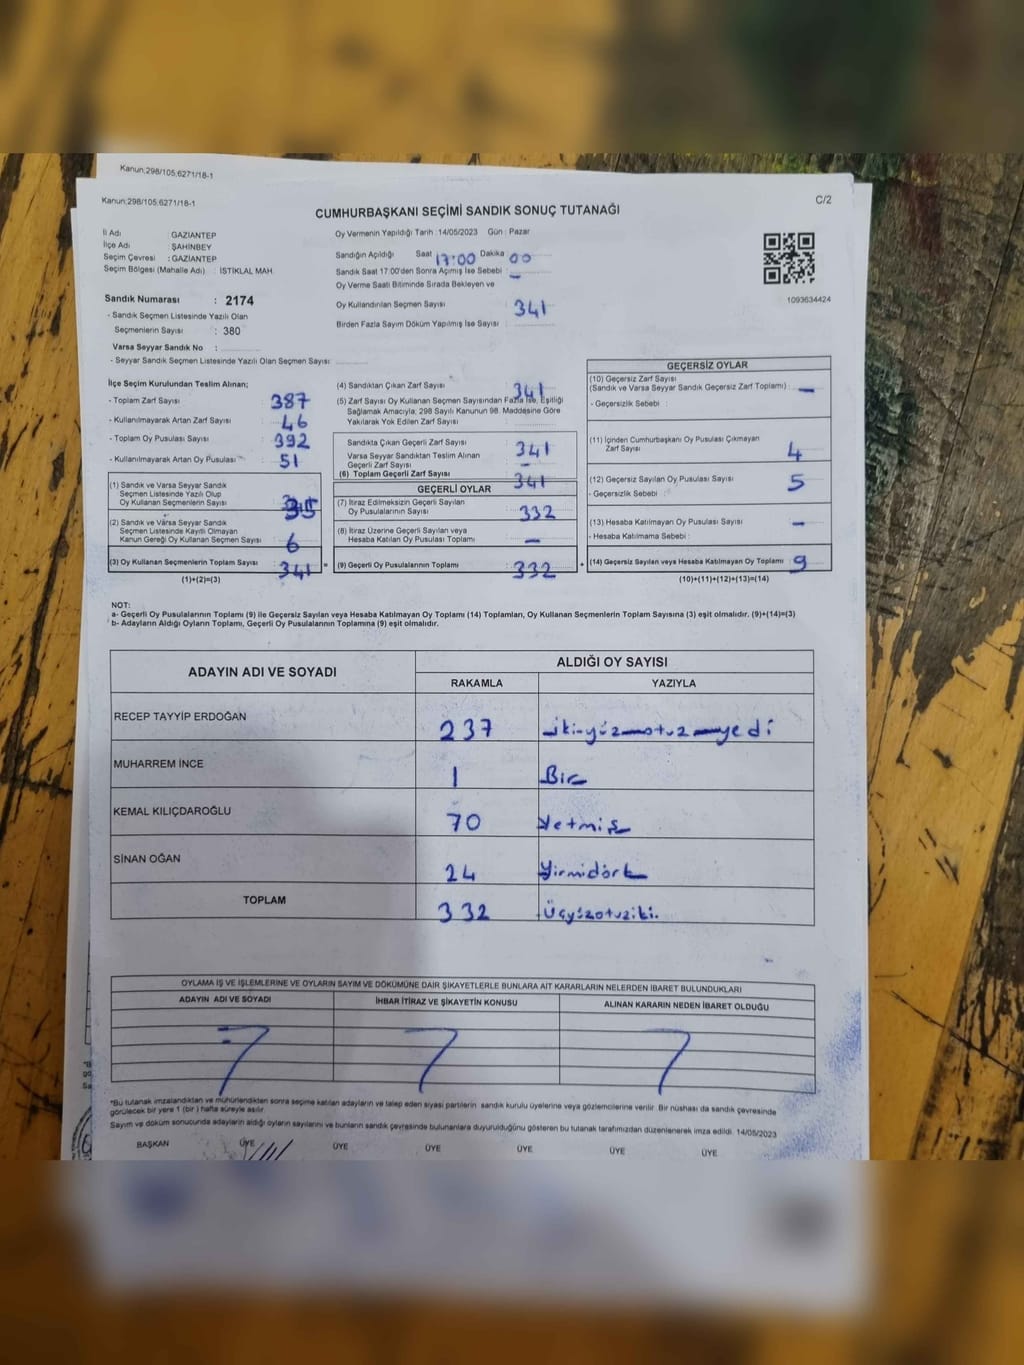 Kanun;298/105,6271/18-1
Kanun;298/105,6271/18-1
C/2
CUMHURBAŞKANI SEÇİMİ SANDIK SONUÇ TUTANAĞI
İl Adı : GAZİANTEP
İlçe Adı : ŞAHİNBEY
Seçim Çevresi : GAZİANTEP
Seçim Bölgesi (Mahalle Adı) : İSTİKLAL MAH.
Oy Vermenin Yapıldığı Tarih :14/05/2023 Gün : Pazar
Sandığın Açıldığı Saat 17:00 Dakika 00
Sandık Saat 17:00'den Sonra Açılmış İse Sebebi : -
Oy Verme Saati Bitiminde Sırada Bekleyen ve
Oy Kullandırılan Seçmen Sayısı 341
Birden Fazla Sayım Döküm Yapılmış İse Sayısı :
1093634424
Sandık Numarası : 2174
- Sandık Seçmen Listesinde Yazılı Olan
Seçmenlerin Sayısı : 380
Varsa Seyyar Sandık No :
- Seyyar Sandık Seçmen Listesinde Yazılı Olan Seçmen Sayısı:
İlçe Seçim Kurulundan Teslim Alınan;
- Toplam Zarf Sayısı : 387
- Kullanılmayarak Artan Zarf Sayısı : 46
- Toplam Oy Pusulası Sayısı : 392
- Kullanılmayarak Artan Oy Pusulası : 51
(1) Sandık ve Varsa Seyyar Sandık
Seçmen Listesinde Yazılı Olup
Oy Kullanan Seçmenlerin Sayısı :
(2) Sandık ve Varsa Seyyar Sandık
Seçmen Listesinde Kayıtlı Olmayan
Kanun Gereği Oy Kullanan Seçmen Sayısı : 6
(3) Oy Kullanan Seçmenlerin Toplam Sayısı : 341 =
(1)+(2)=(3)
(4) Sandıktan Çıkan Zarf Sayısı : 341
(5) Zarf Sayısı Oy Kullanan Seçmen Sayısından Fazla İse, Eşitliği
Sağlamak Amacıyla, 298 Sayılı Kanunun 98. Maddesine Göre
Yakılarak Yok Edilen Zarf Sayısı :
Sandıkta Çıkan Geçerli Zarf Sayısı : 341
Varsa Seyyar Sandıktan Teslim Alınan
Geçerli Zarf Sayısı : -
(6) Toplam Geçerli Zarf Sayısı : 341
GEÇERLİ OYLAR
(7) İtiraz Edilmeksizin Geçerli Sayılan
Oy Pusulalarının Sayısı : 332
(8) İtiraz Üzerine Geçerli Sayılan veya
Hesaba Katılan Oy Pusulası Toplamı : -
(9) Geçerli Oy Pusulalarının Toplamı : 332 +
GEÇERSİZ OYLAR
(10) Geçersiz Zarf Sayısı
(Sandık ve Varsa Seyyar Sandık Geçersiz Zarf Toplamı) : -
- Geçersizlik Sebebi :
(11) İçinden Cumhurbaşkanı Oy Pusulası Çıkmayan
Zarf Sayısı : 4
(12) Geçersiz Sayılan Oy Pusulası Sayısı : 5
- Geçersizlik Sebebi :
(13) Hesaba Katılmayan Oy Pusulası Sayısı : -
- Hesaba Katılmama Sebebi :
(14) Geçersiz Sayılan veya Hesaba Katılmayan Oy Toplamı : 9
(10)+(11)+(12)+(13)=(14)
NOT:
a- Geçerli Oy Pusulalarının Toplamı (9) ile Geçersiz Sayılan veya Hesaba Katılmayan Oy Toplamı (14) Toplamları, Oy Kullanan Seçmenlerin Toplam Sayısına (3) eşit olmalıdır. (9)+(14)=(3)
b- Adayların Aldığı Oyların Toplamı, Geçerli Oy Pusulalarının Toplamına (9) eşit olmalıdır.
ADAYIN ADI VE SOYADI ALDIĞI OY SAYISI
RAKAMLA YAZIYLA
RECEP TAYYİP ERDOĞAN 237 iki-yüz-otuz-yedi
MUHARREM İNCE 1 Bir
KEMAL KILIÇDAROĞLU 70 Yetmiş
SİNAN OĞAN 24 Yirmidört
TOPLAM 332 Üçyüzotuziki.
OYLAMA İŞ VE İŞLEMLERİNE VE OYLARIN SAYIM VE DÖKÜMÜNE DAİR ŞİKAYETLERLE BUNLARA AİT KARARLARIN NELERDEN İBARET BULUNDUKLARI
ADAYIN ADI VE SOYADI İHBAR İTİRAZ VE ŞİKAYETİN KONUSU ALINAN KARARIN NEDEN İBARET OLDUĞU
*Bu tutanak imzalandıktan ve mühürlendikten sonra seçime katılan adayların ve talep eden siyasi partilerin sandık kurulu üyelerine veya gözlemcilerine verilir. Bir nüshası da sandık çevresinde
görülecek bir yere 1 (bir) hafta süreyle asılır.
Sayım ve döküm sonucunda adayların aldığı oyların sayılarını ve bunların sandık çevresinde bulunanlara duyurulduğunu gösteren bu tutanak tarafımızdan düzenlenerek imza edildi. 14/05/2023
BAŞKAN ÜYE ÜYE ÜYE ÜYE ÜYE ÜYE